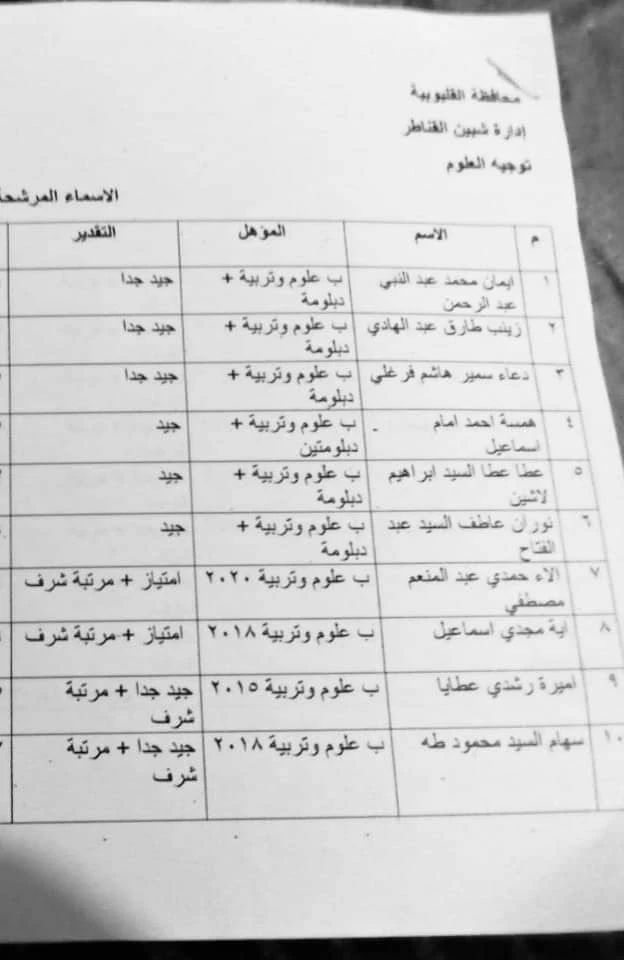 محافظة القليوبية
إدارة شبين القناطر
توجيه العلوم
الاسماء المرشحة
م الاسم المؤهل التقدير
١ ايمان محمد عبد النبي ب علوم وتربية + جيد جدا
عبد الرحمن دبلومة
٢ زينب طارق عبد الهادي ب علوم وتربية + جيد جدا
دبلومة
٣ دعاء سمير هاشم فرغلي ب علوم وتربية + جيد جدا
دبلومة
٤ همسة احمد امام ب علوم وتربية + جيد
اسماعيل دبلومتين
٥ عطا عطا السيد ابراهيم ب علوم وتربية + جيد
لاشين دبلومة
٦ نوران عاطف السيد عبد ب علوم وتربية + جيد
الفتاح دبلومة
٧ الاء حمدي عبد المنعم ب علوم وتربية ٢٠٢٠ امتياز + مرتبة شرف
مصطفي
٨ اية مجدي اسماعيل ب علوم وتربية ٢٠١٨ امتياز + مرتبة شرف
٩ اميرة رشدي عطايا ب علوم وتربية ٢٠١٥ جيد جدا + مرتبة
شرف
١٠ سهام السيد محمود طه ب علوم وتربية ٢٠١٨ جيد جدا + مرتبة
شرف